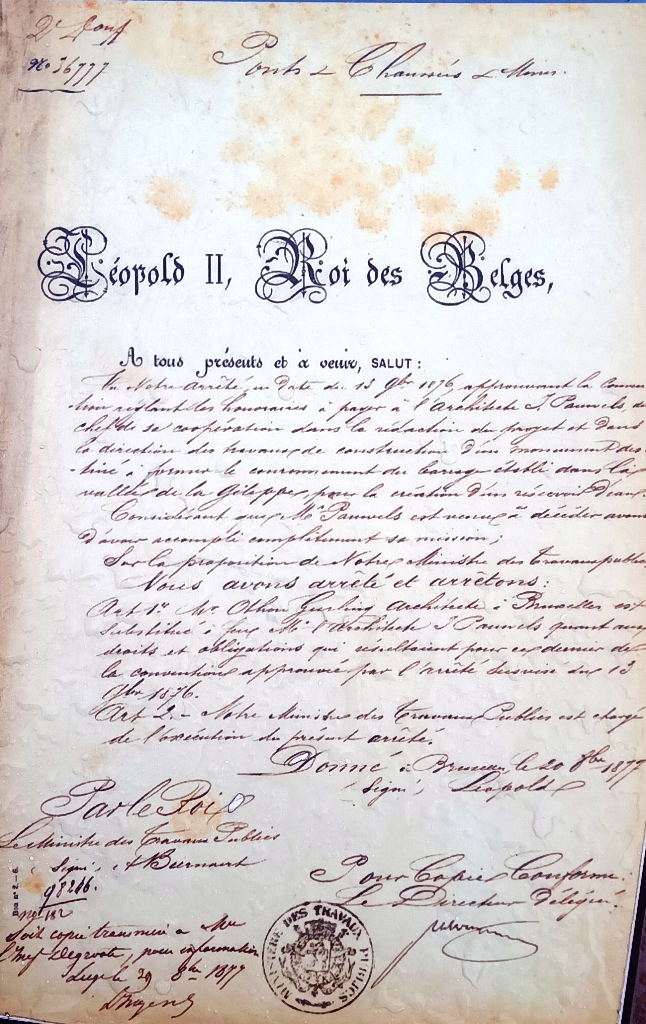 2e Don
No 36777
Ponts & Chaussées & Mines.
Léopold II, Roi des Belges,
A tous présents et à venir, SALUT :
Vu Notre Arrêté, en date du 13 9bre 1876, approuvant la conven
tion réglant les honoraires à payer à l'Architecte J. Pauwels, du
chef de sa coopération dans la rédaction du projet et dans
la direction des travaux de construction d'un monument des
tiné à former le couronnement du barrage établi dans la
vallée de la Gileppe, pour la création d'un réservoir d'eau.
Considérant que Mr Pauwels est venu à décéder avant
d'avoir accompli complètement sa mission;
Sur la proposition de Notre Ministre des Travaux publics
Nous avons arrêté et arrêtons:
Art 1er Mr Othon Gerling Architecte à Bruxelles est
substitué à feu Mr l'Architecte J Pauwels quant aux
droits et obligations qui résultaient pour ce dernier de
la convention approuvée par l'arrêté susvisé du 13
9bre 1876.
Art 2.- Notre Ministre des Travaux Publics est chargé
de l'exécution du présent arrêté.
Donné à Bruxelles le 20 8bre 1877
Signé, Léopold
Par le Roi
Le Ministre des Travaux Publics
Signé, A Beernaert
Pour Copie Conforme:
Le Directeur Délégué.
98216.
no 182
Soit copie transmise à Mr
l'Ingr Degroote, pour information
Liege le 29 8bre 1877
MINISTÈRE DES TRAVAUX PUBLICS